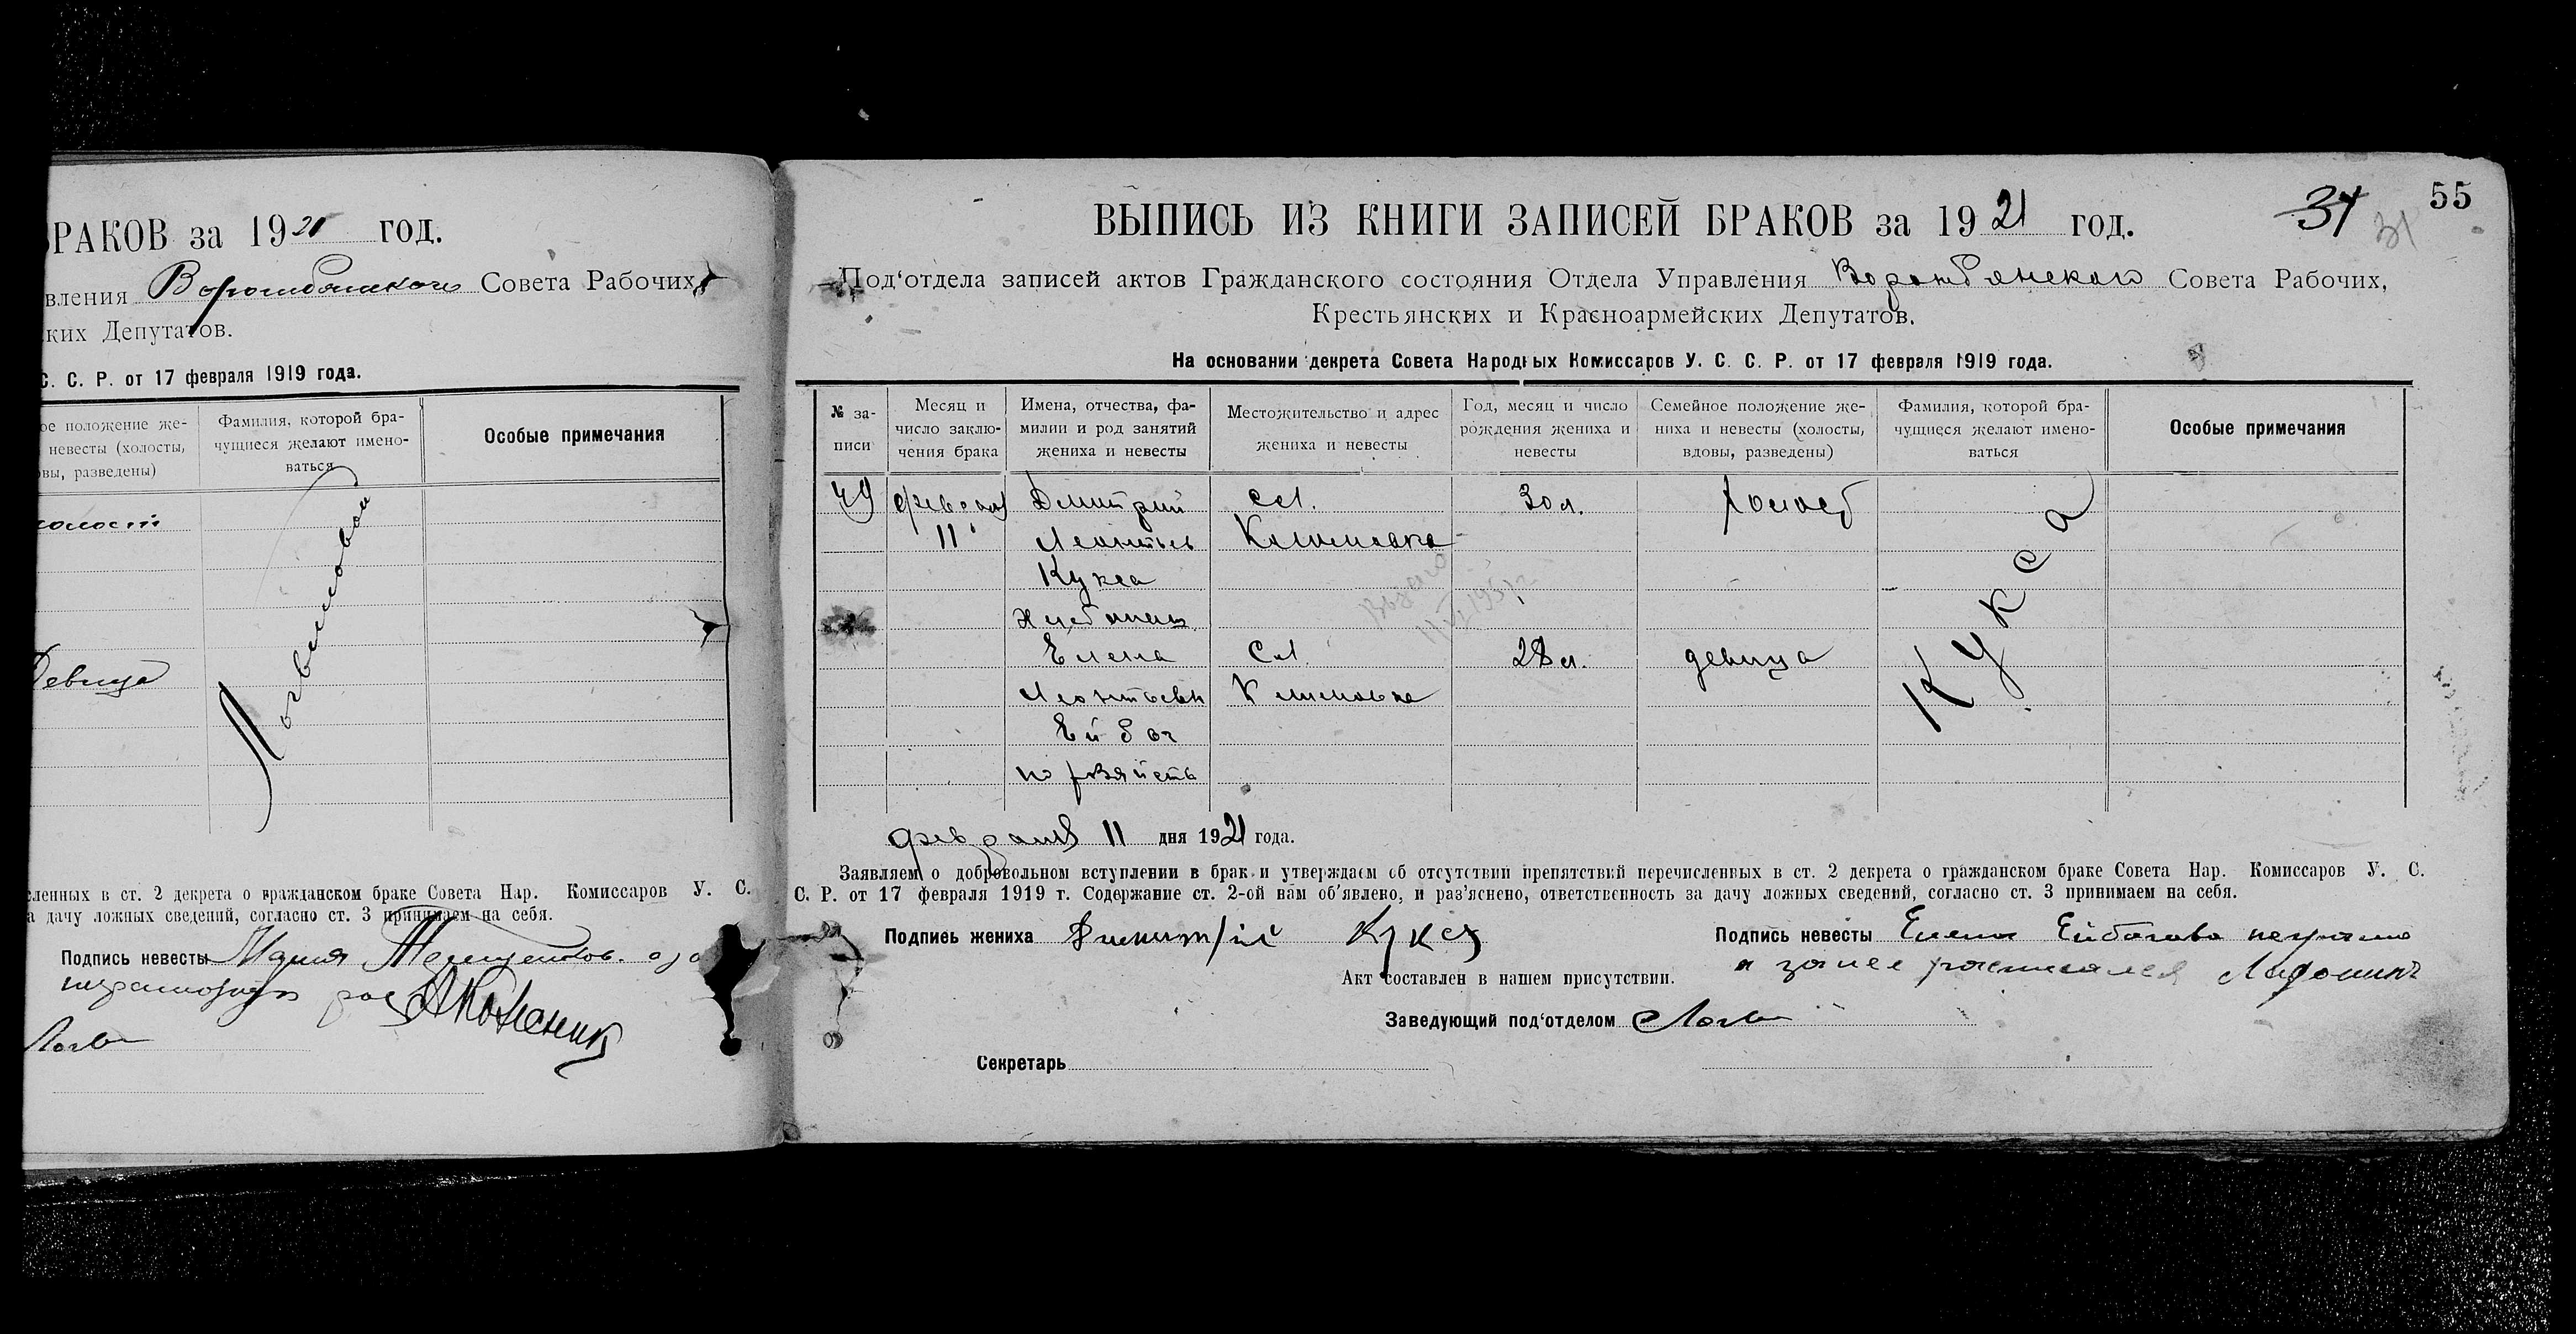 РАКОВ за 1921 год.
вления Ворожбянского Совета Рабочих,
ских Депутатов.
С. С. Р. от 17 февраля 1919 года.
ое положение же-
невесты (холосты,
овы, разведены)
Фамилия, которой бра-
чущиеся желают имено-
ваться
Особые примечания
холост
Девица
сленных в ст. 2 декрета о гражданском браке Совета Нар. Комиссаров У. С.
а дачу ложных сведений, согласно ст. 3 принимаем на себя.
Подпись невесты Мария
55
31
31
ВЫПИСЬ ИЗ КНИГИ ЗАПИСЕЙ БРАКОВ за 1921 год.
Под‘отдела записей актов Гражданского состояния Отдела Управления Ворожбянского Совета Рабочих,
Крестьянских и Красноармейских Депутатов.
На основании декрета Совета Народных Комиссаров У. С. С. Р. от 17 февраля 1919 года.
№ за-
писи
Месяц и
число заклю-
чения брака
Имена, отчества, фа-
милии и род занятий
жениха и невесты
Местожительство и адрес
жениха и невесты
Год, месяц и число
рождения жениха и
невесты
Семейное положение же-
ниха и невесты (холосты,
вдовы, разведены)
Фамилия, которой бра-
чущиеся желают имено-
ваться
Особые примечания
49 февраля Дмитрий сл. 30 л. холост
11 Леонтьев Климовка
Кукса
Хлебопаш
Елена Сл. 28 л. девица
Леонтьевн Климовка
Ейбог
Кукса
февраля 11 дня 1921 года.
Заявляем о добровольном вступлении в брак и утверждаем об отсутствии препятствий перечисленных в ст. 2 декрета о гражданском браке Совета Нар. Комиссаров У. С.
С. Р. от 17 февраля 1919 г. Содержание ст. 2-ой нам об‘явлено, и раз‘яснено, ответственность за дачу ложных сведений, согласно ст. 3 принимаем на себя.
Подпись жениха Димитрій Кукса
Подпись невесты Елена Ейбогова неграмо
а за нее росписался
Акт составлен в нашем присутствии.
Заведующий под‘отделом
Секретарь